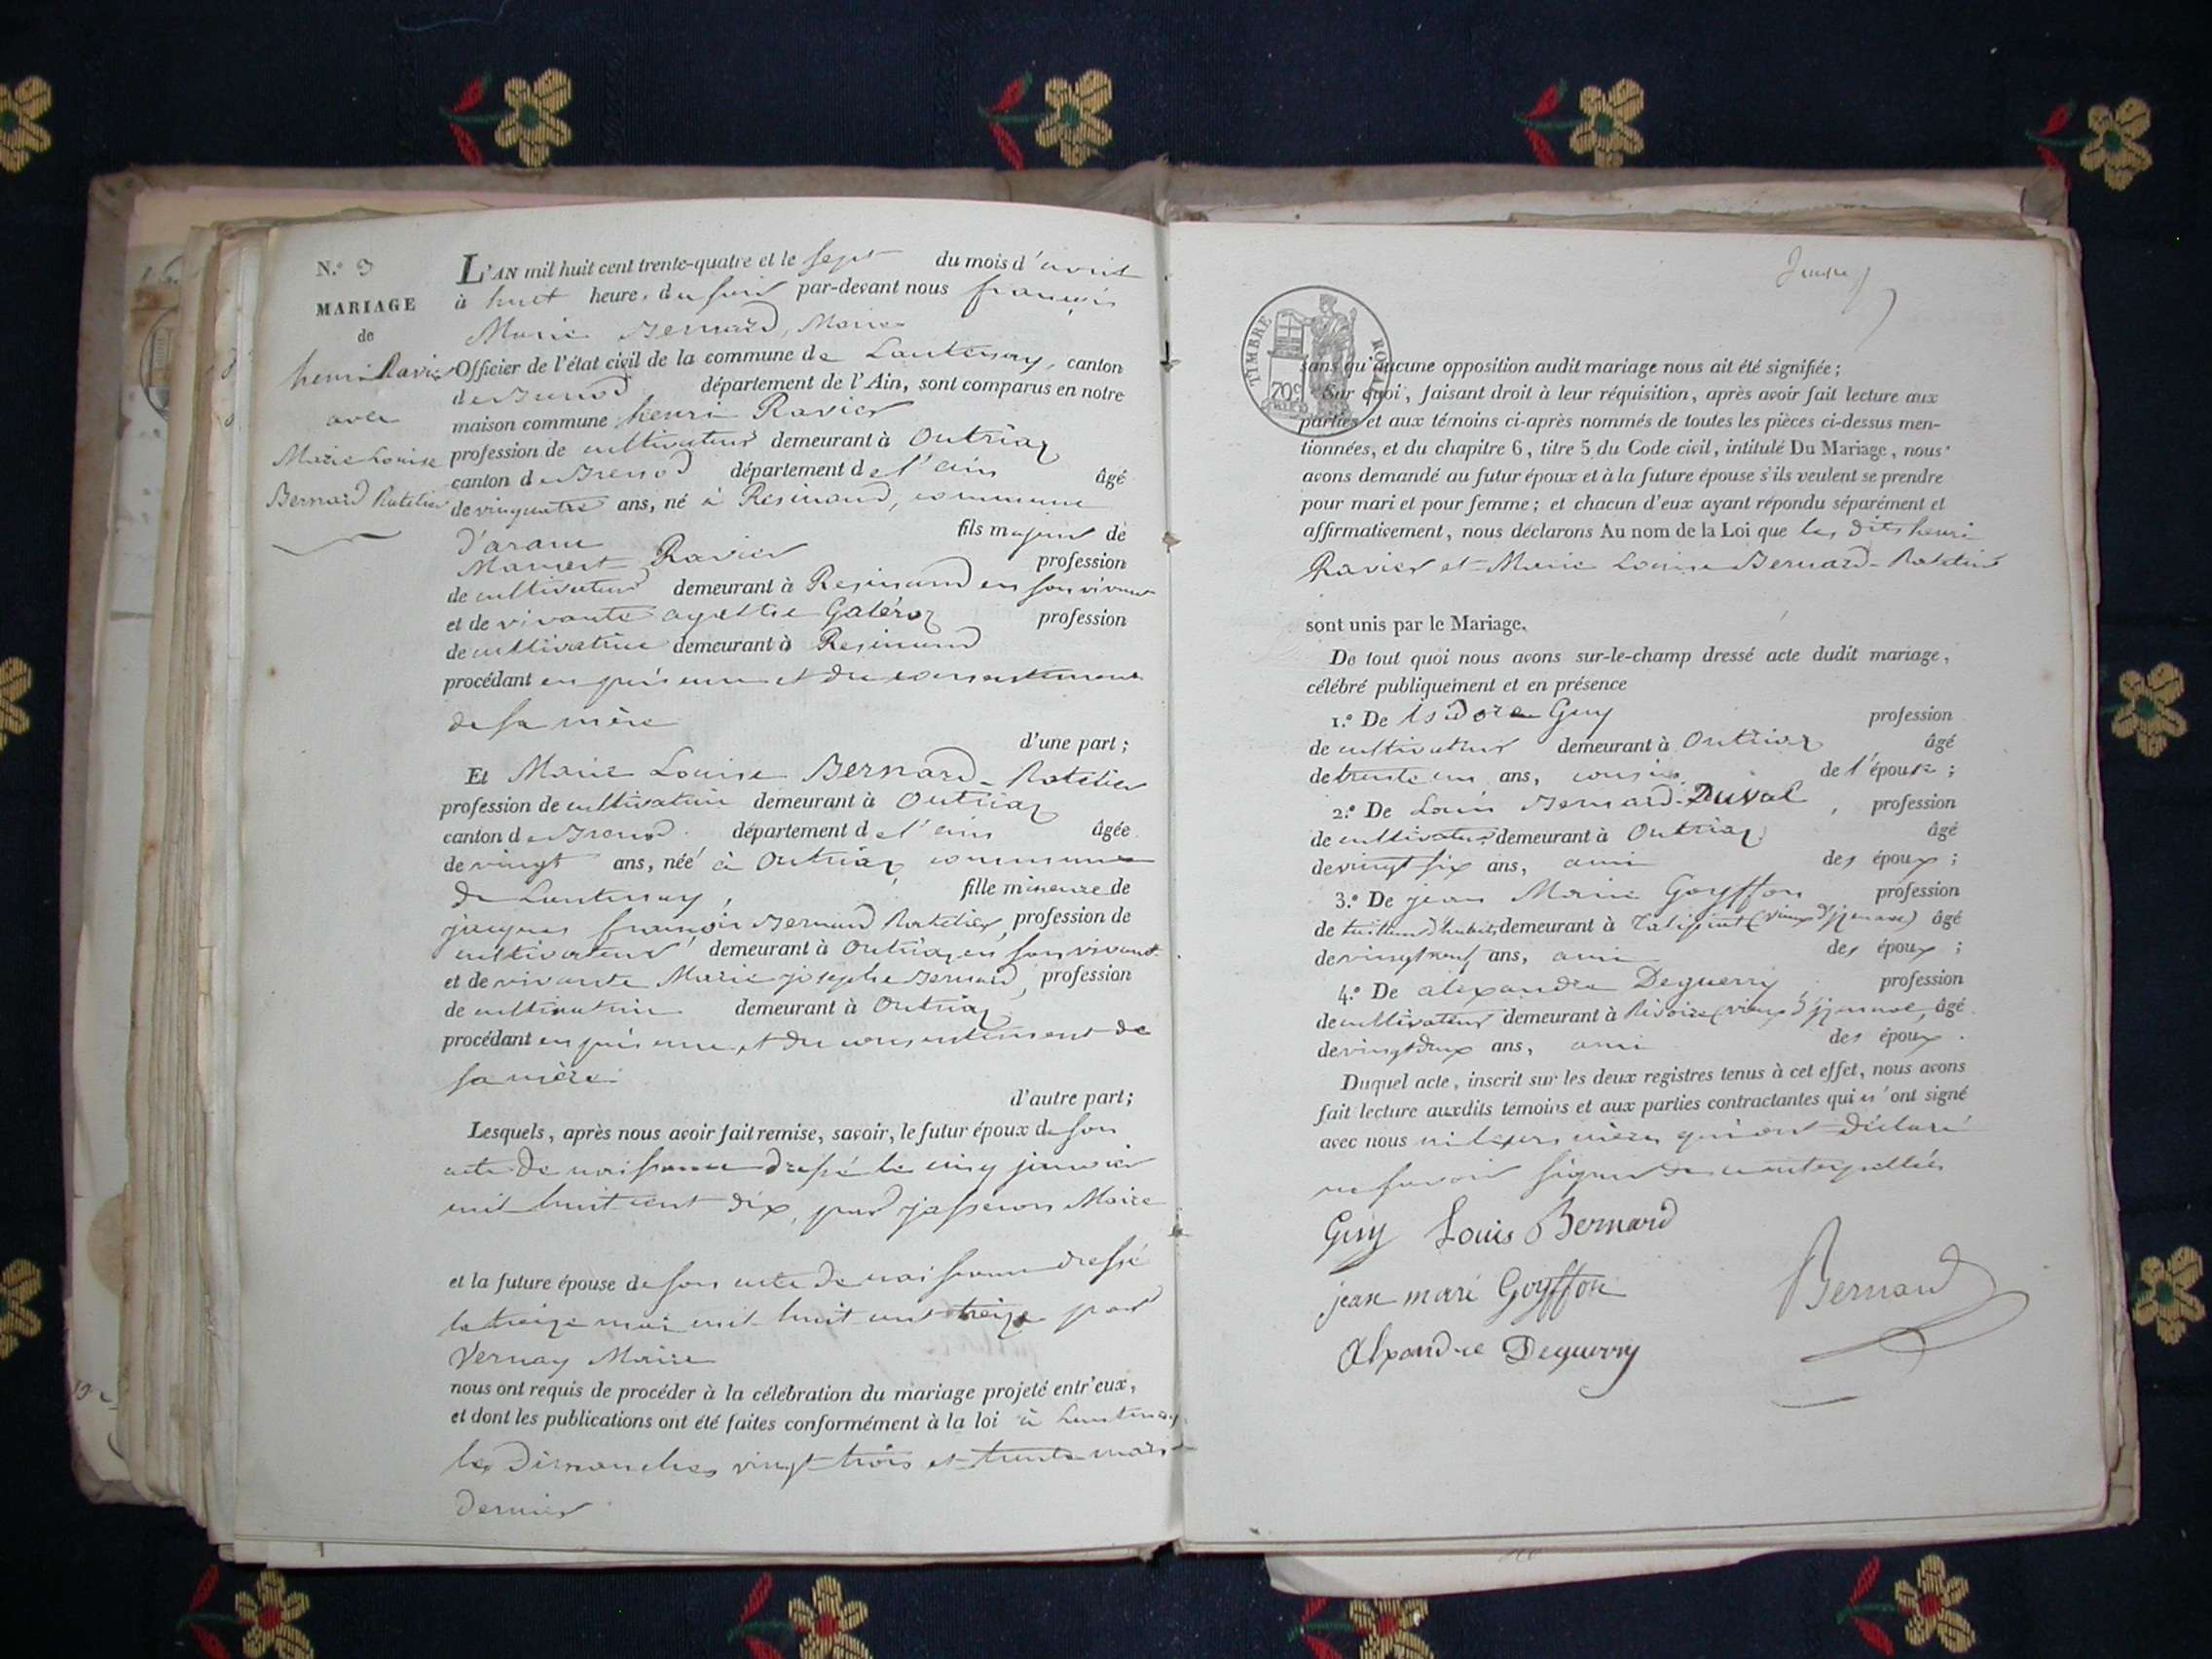 N.º 3
MARIAGE
de
henri Ravier
avec
Marie Louise
Bernard Ratelier
L'AN mil huit cent trente-quatre et le sept du mois d'avril
à huit heure, du soir par-devant nous françois
Marie Bernard, Maire
Officier de l'état civil de la commune de Lantenay, canton
de Brenod département de l'Ain, sont comparus en notre
maison commune henri Ravier
profession de cultivateur demeurant à Outriaz
canton de Brenod département de l'ain âgé
de vingquatre ans, né à Resinand, commune
d'aranc fils majeur de
Mamert Ravier profession
de cultivateur demeurant à Resinand en son vivant
et de vivante Galéraz profession
de cultivatrice demeurant à Resinand
procédant en présence et du consentement
de sa mère
d'une part;
Et Marie Louise Bernard-Ratelier
profession de cultivatrice demeurant à Outriaz
canton de Brenod département de l'ain âgée
de vingt ans, née à Outriaz commune
de Lantenay, fille mineure de
jacques françois Bernard Ratelier, profession de
cultivateur demeurant à Outriaz en son vivant
et de vivante Marie josephe Bernard, profession
de cultivatrice demeurant à Outriaz
procédant en présence et du consentement de
sa mère
d'autre part;
Lesquels, après nous avoir fait remise, savoir, le futur époux de son
acte de naissance dressé le cinq janvier
mil huit cent dix, par jasseron Maire
et la future épouse de son acte de naissance dressé
le treize mai mil huit cent treize par
Vernay Maire
nous ont requis de procéder à la célébration du mariage projeté entr'eux,
et dont les publications ont été faites conformément à la loi à Lantenay
les Dimanches vingt trois et trente mars
dernier
TIMBRE ROYAL
70c
sans qu'aucune opposition audit mariage nous ait été signifiée;
Sur quoi, faisant droit à leur réquisition, après avoir fait lecture aux
parties et aux témoins ci-après nommés de toutes les pièces ci-dessus men-
tionnées, et du chapitre 6, titre 5 du Code civil, intitulé Du Mariage, nous
avons demandé au futur époux et à la future épouse s'ils veulent se prendre
pour mari et pour femme; et chacun d'eux ayant répondu séparément et
affirmativement, nous déclarons Au nom de la Loi que les dits henri
Ravier et Marie Louise Bernard-Ratelier
sont unis par le Mariage.
De tout quoi nous avons sur-le-champ dressé acte dudit mariage,
célébré publiquement et en présence
1.º De Isidore Guy profession
de cultivateur demeurant à Outriaz âgé
de trente un ans, cousin de l'épouse;
2.º De Louis Bernard-Duval, profession
de cultivateur demeurant à Outriaz âgé
de vingt six ans, ami des époux;
3.º De jean Marie Goyffon profession
de tailleur d'habits demeurant à Talissieu (vieux d'yzenave) âgé
de vingt neuf ans, ami des époux;
4.º De alexandre Deguerry, profession
de cultivateur demeurant à Rivoire (vieux d'yzenave, âgé
de vingt deux ans, ami des époux.
Duquel acte, inscrit sur les deux registres tenus à cet effet, nous avons
fait lecture auxdits témoins et aux parties contractantes qui n'ont signé
avec nous ni leurs mères qui ont déclaré
ne savoir signer de ce interpellés
Guy Louis Bernard
jean marie Goyffon
Bernard
Alxandre Deguerry